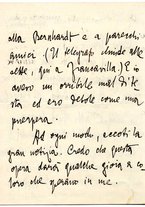 alla Bernhardt e a parecchi
amici (Il telegrafo chiude alle
sette, qui a Francavilla) E io
avevo un orribile mal di te
sta ed ero debole come una
puerpera.
Ad ogni modo, eccoti la
gran notizia. Credo che questa
opera darà qualche gioia a co-
loro che sperano in me.